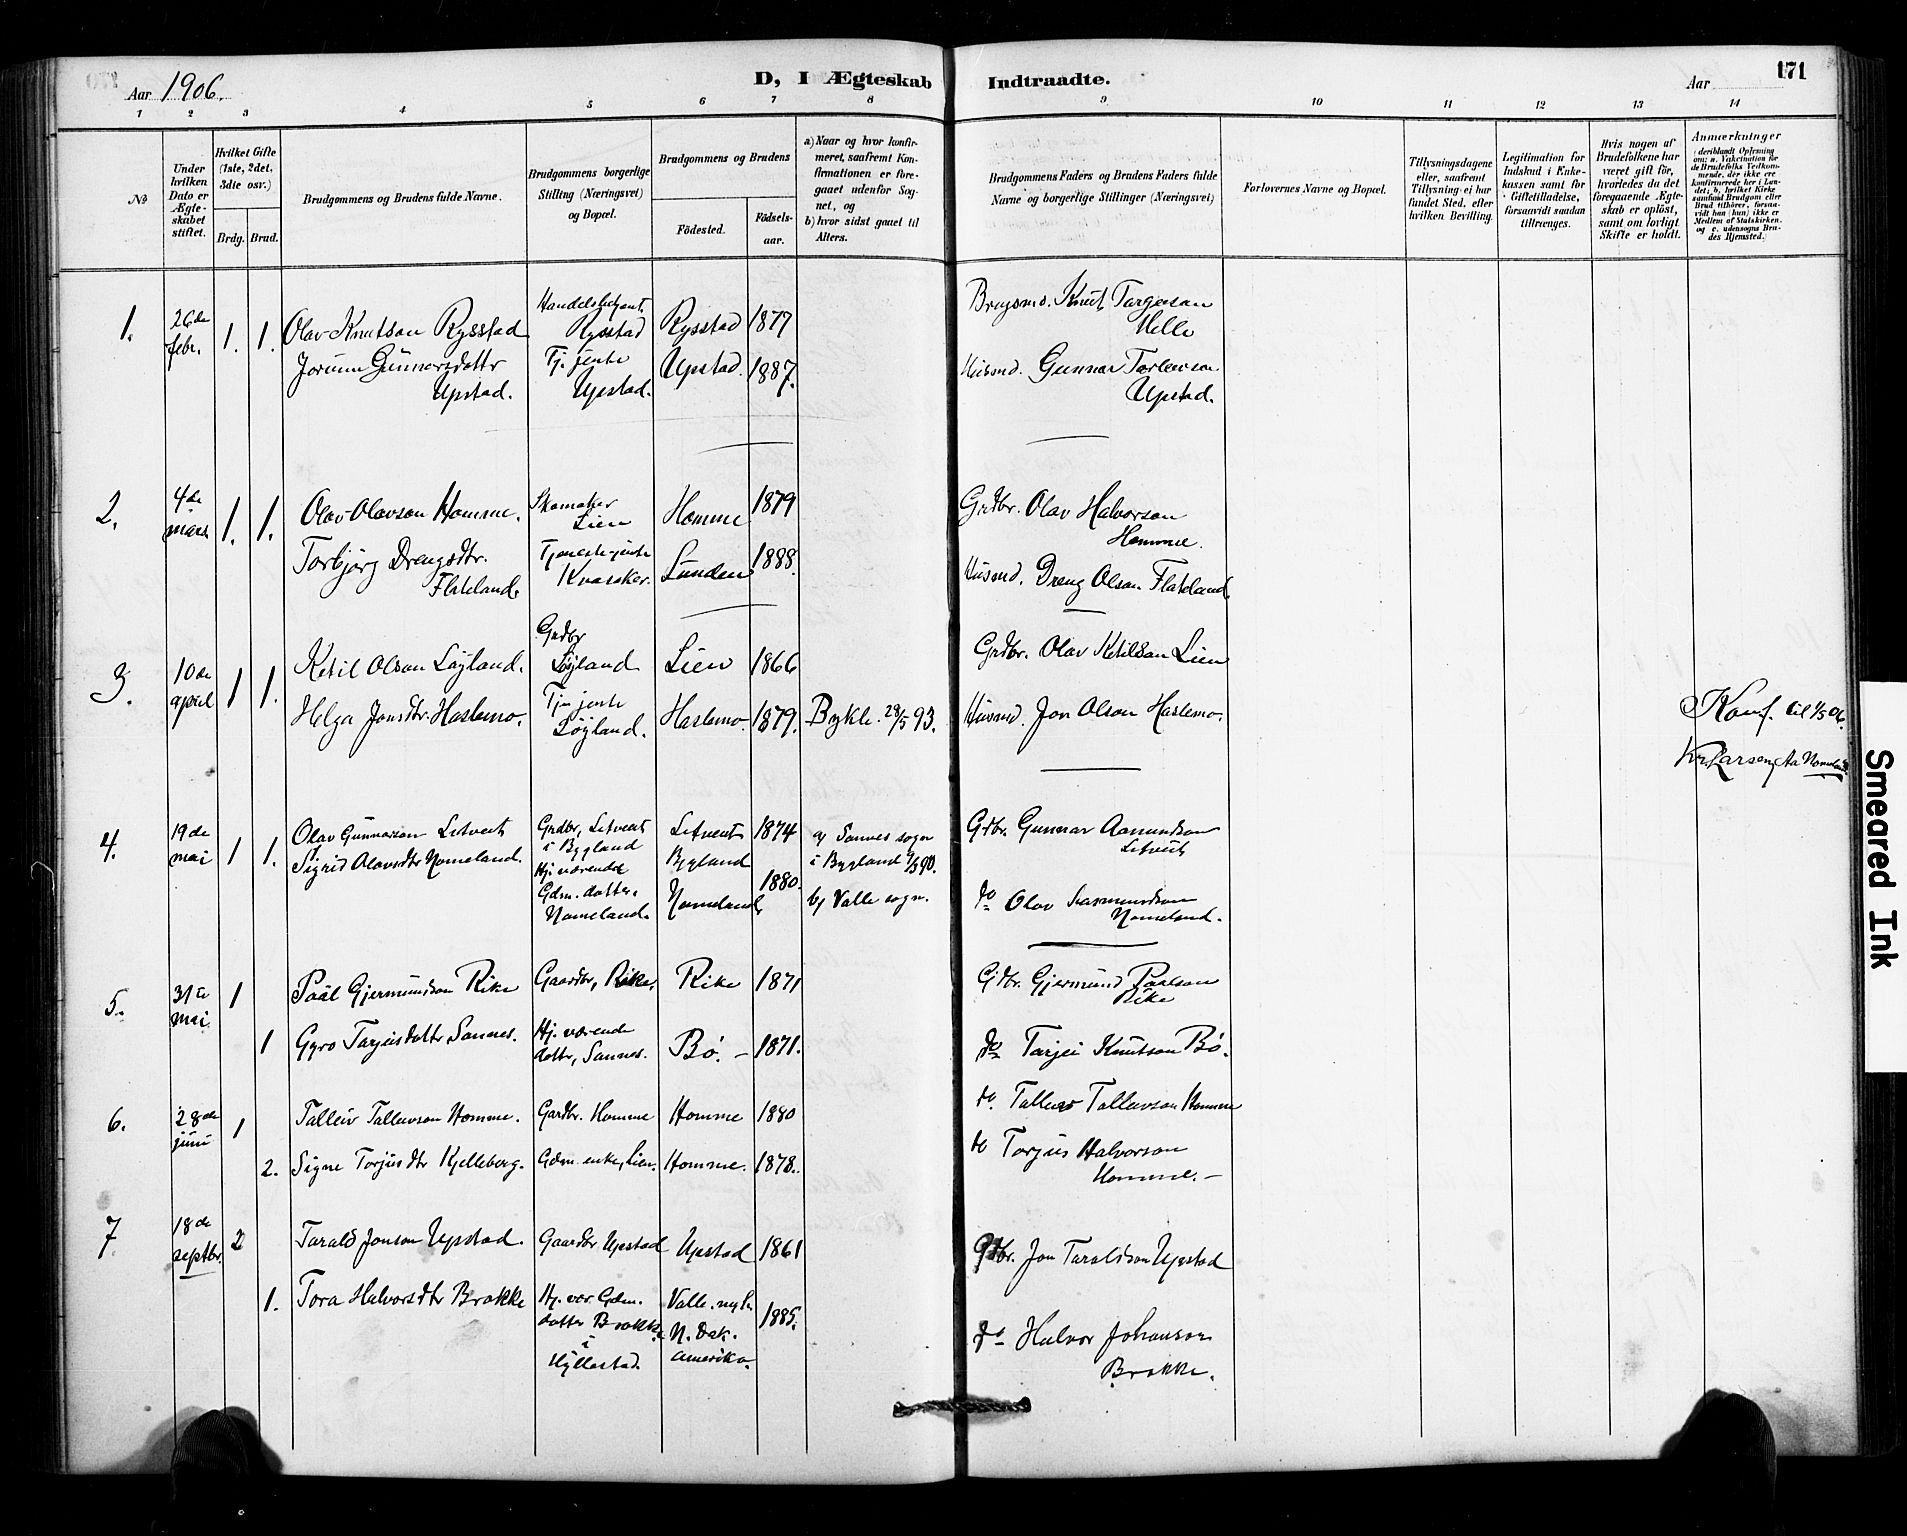 Aar 1906.
D, I Ægteskab Indtraadte.
Aar
171
1 2 3 4 5 6 7 8 9 10 11 12 13 14
№
Under hvilken Dato er Ægteskabet stiftet.
Hvilket Gifte (1ste, 2det, 3die osv.)
Brdg. Brud.
Brudgommens og Brudens fulde Navne.
Brudgommens borgerlige Stilling (Næringsvei) og Bopæl.
Brudgommens og Brudens
Fødested.
Fødselsaar.
a) Naar og hvor konfirmeret, saafremt Konfirmationen er foregaaet udenfor Sognet, og
b) hvor sidst gaaet til Alters.
Brudgommens Faders og Brudens Faders fulde Navne og borgerlige Stillinger (Næringsvei)
Forlovernes Navne og Bopæl.
Tillysningsdagene eller, saafremt Tillysning ei har fundet Sted, efter hvilken Bevilling.
Legitimation for Indskud i Enkekassen samt for Giftetilladelse, forsaavidt saadan tiltrænges.
Hvis nogen af Brudefolkene har været gift før, hvorledes da det foregaaende Ægteskab er opløst, samt om lovligt Skifte er holdt.
Anmærkninger
1. 26de febr. 1. 1. Olav Knutson Rysstad
Rysstad Rysstad 1877
Knut Targeson Helle
Jorunn Gunnarsdottr Upstad.
Tj. jente Upstad. Upstad. 1887.
Husmd. Gunnar Torleivson Upstad.
2. 4de mars 1. 1. Olav Olavson Homme.
Skomaker Lien Homme 1879
Grdbr. Olav Halvorson Homme.
Torbjørg Drengsdtr. Flateland.
Tjenestejente Kvasaker. Lunden 1888.
Husmd. Dreng Olson Flateland.
3. 10de april 1 1. Ketil Olson Løyland.
Grdbr Løyland Lien 1866
Grdbr. Olav Ketilson Lien
Helga Jonsdtr. Haslemo.
Tj. jente Løyland. Haslemo. 1879. Bykle 28/5 93.
Husmd. Jon Olson Haslemo.
Konf. til 1/5 06.
Kr. Larsen, Aa Nomeland
4. 19de mai 1 1. Olav Gunnarson Litveit
Grdbr, Litveit i Bygland
Litveit Bygland 1874
a) Sannes sogn i Bygland
b) Valle sogn.
Gdbr. Gunnar Aamundson Litveit
Sigrid Olavsdtr Nomeland.
Hj. værende Gdm. datter, Nomeland.
Nomeland. 1880.
do Olav Nomeland.
5. 31te mai 1 Paal Gjermundson Rike
Gaardbr, Rike. Rike 1871
Gdbr. Gjermund Paalson Rike
1 Gyro Tarjeisdottr Sannes.
Hj. værende dottr, Sannes. Bø. – 1871.
do Tarjei Knutson Bø.
6. 28de juni 1 Talleiv Tallevson Homme.
Gardbr. Homme Homme 1880
do. Talleiv Tallevson Homme
2. Signe Torjusdtr Kjelleberg.
Gdm. enke, Lien. Homme. 1878.
do Torjus Halvorson Homme. –
7 18de septbr. 2 Tarald Jonson Upstad.
Gaardbr Upstad Upstad 1861
Gdbr. Jon Taraldson Upstad
1. Tora Halvorsdtr Brokke
Hj. vær. Gdm. datter Brokke i Hyllestad.
N. Dak. Amerika. 1885.
do Halvor Johanson Brokke.
Smeared Ink